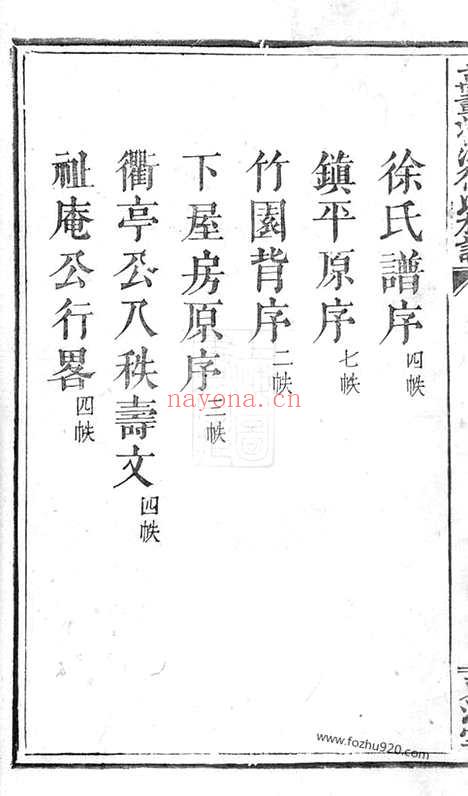 徐氏譜序 四帙
鎮平原序 七帙
竹園背序 二帙
下屋房原序 二帙
衢亭公八秩壽文 四帙
祉庵公行畧 四帙
nayona.cn
www.fozhu920.com